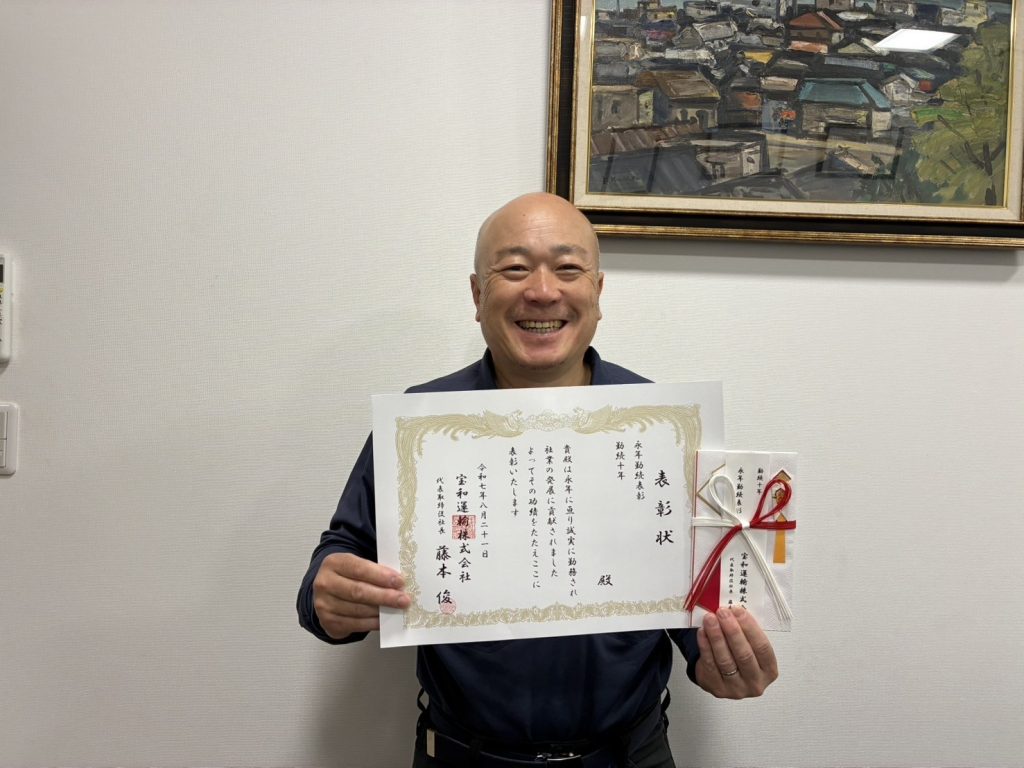 表彰状
永年勤続表彰
勤続十年
殿
貴殿は永年に亘り誠実に勤務され
社業の発展に貢献されました
よってその功績をたたえここに
表彰いたします
令和七年八月二十一日
宝和運輸株式会社
代表取締役社長 藤本 俊
勤続十年
永年勤続表彰
宝和運輸株式
代表取締役社長